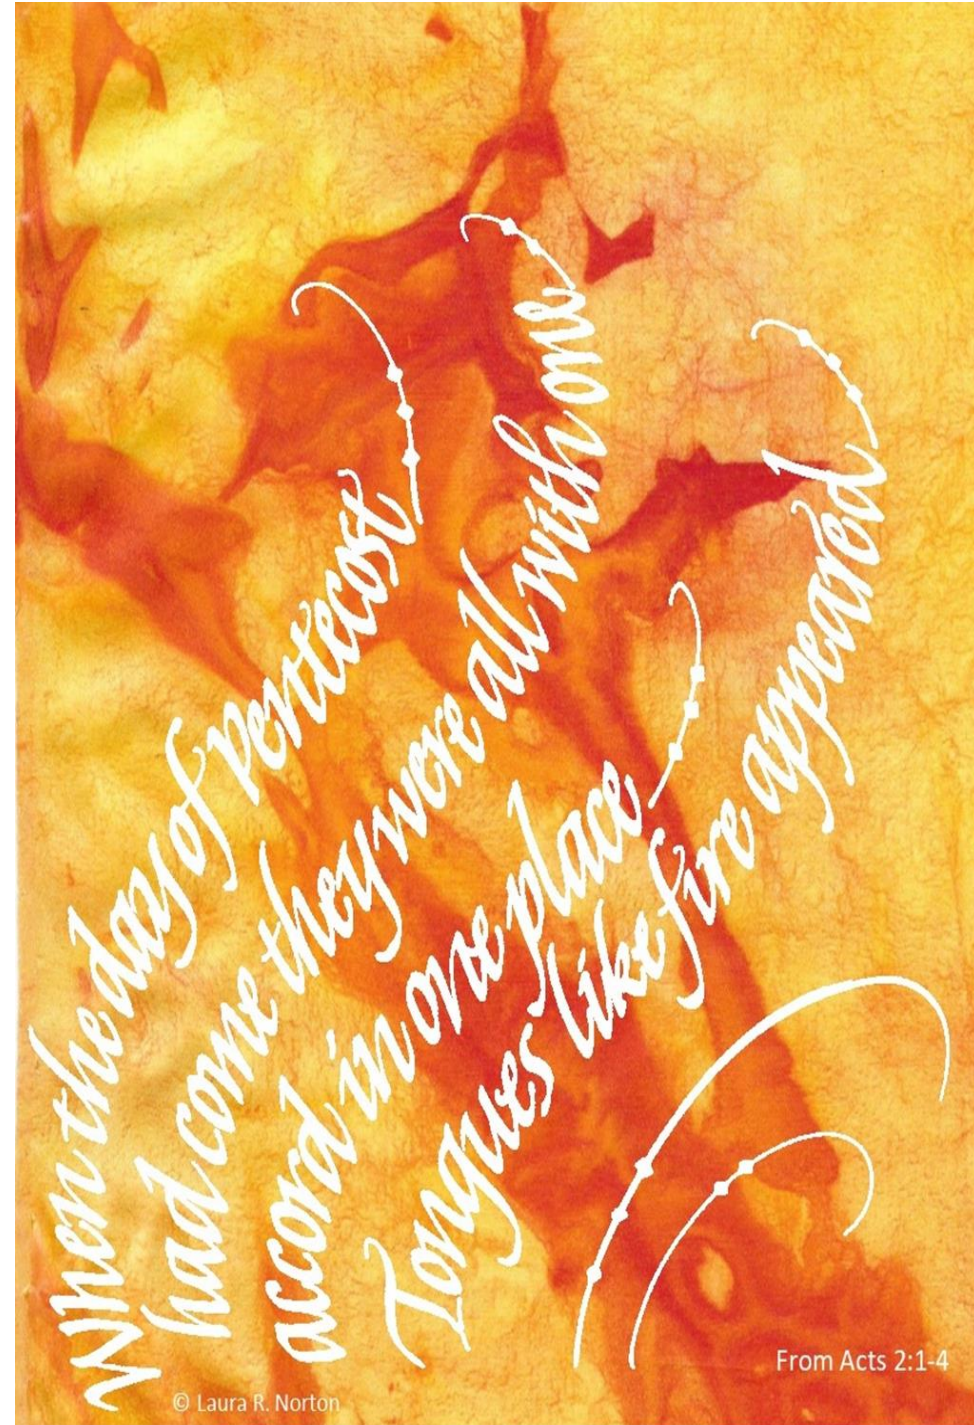 When the day of pentecost
had come they were all with one
accord in one place
Tongues like fire appeared
From Acts 2:1-4
© Laura R. Norton